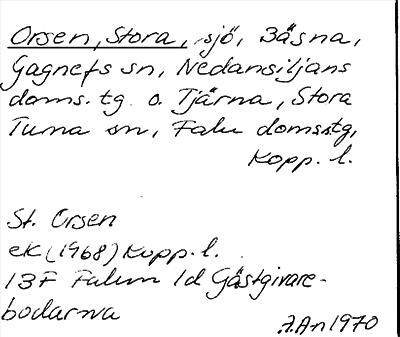 Orsen, Stora, sjö, Bäsna,
Gagnefs sn, Nedansiljans
doms. tg. o. Tjärna, Stora
Tuna sn, Falu domsstg,
Kopp. l.
St. Orsen
ek (1968) Kopp. l.
13F Falun 1d Gästgivare-
bodarna
1970